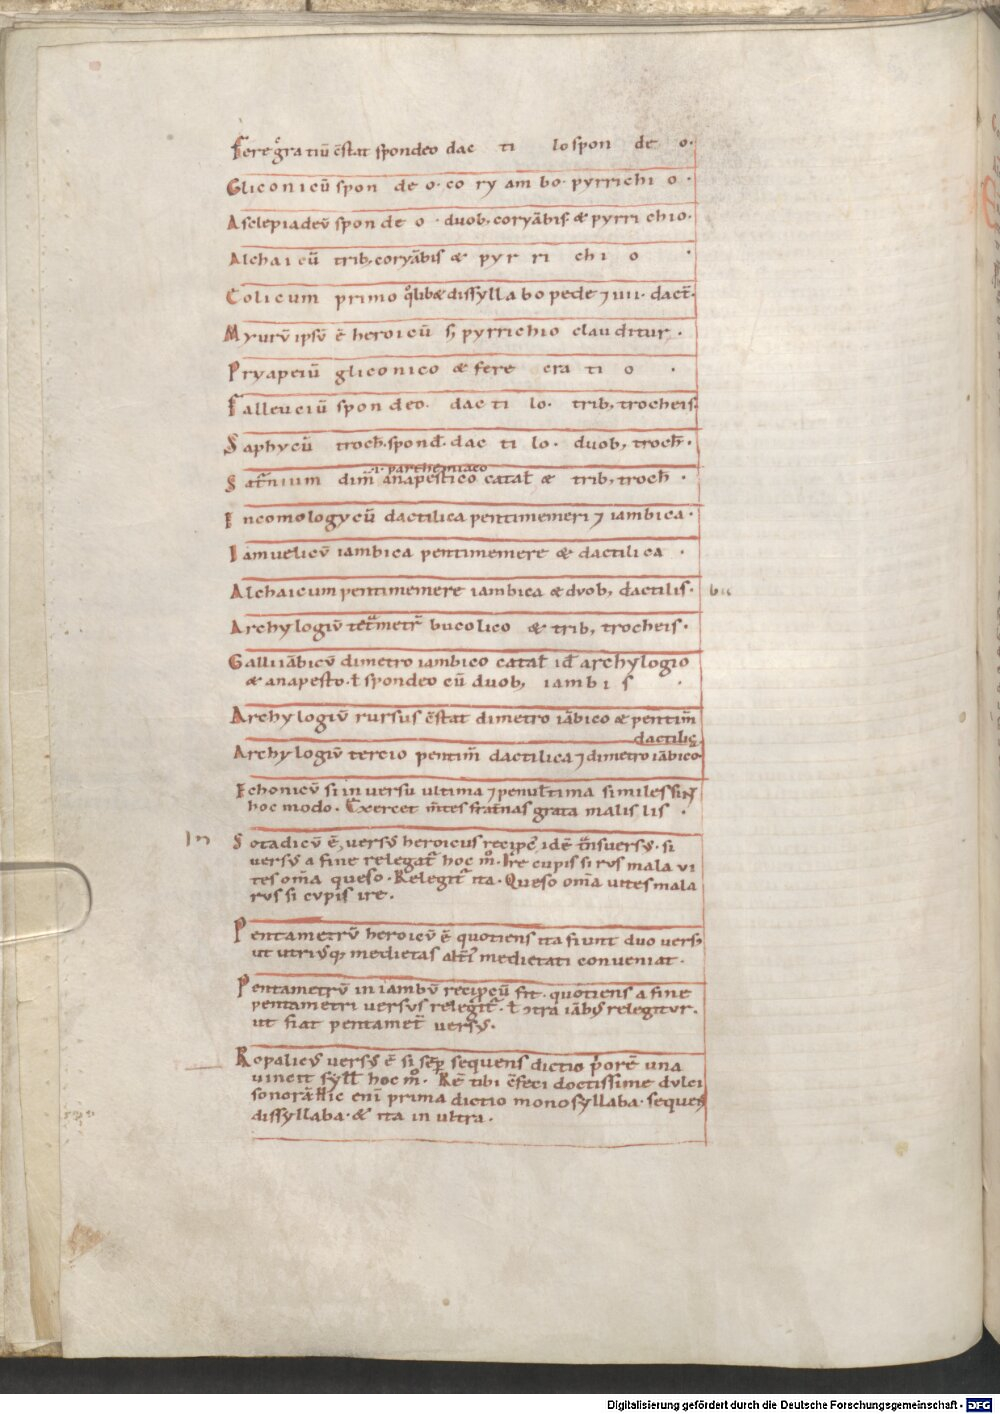 Feregratiū c̄stat spondeo dac ti lo spon de o·
Gliconicū spon de o· co ry am bo· pyrrichi o·
Asclepiadeū spon de o· duob, coryābis· & pyrri chio·
Alchaicū trib, coryābis & pyr ri chi o ·
Colicum primo qͦlibꝫ dissyllabo pede ⁊ iiii· dact̄·
Myurū ipsū ē heroicū s; pyrrichio clauditur·
Pryapeiū gliconico & fere cra ti o ·
Falleuciū spon deo· dac ti lo· trib, trocheis·
Saphycū troch̄· spond̄· dac ti lo· duob, troch̄·
·i· parthemiaco
Sat̄nium dim̄ anapestico catal̄ & trib, troch̄ ·
Incomologycū dactilica pentimemeri ⁊ iambica·
Iamuelicū iambica pentimemere & dactilica ·
Alchaicum pentimemere iambica & duob, dactilis·
Archylogiū tet̄metr̄ bucolico & trib, trocheis·
Galliiābicū dimetro iambico catal̄ id̄ archylogio
& anapesto· ł spondeo cū duob, iambi s ·
Archylogiū rursus c̄stat dimetro iābico & pentim̄
dactilic̨
Archylogiū tercio pentim̄ dactilica ⁊ dimetro iābico
Echonicū si in versu ultima ⁊ penul̄tima similes sin̄t
hoc modo· Exercet m̄tes frat̄nas grata malis lis ·
In Sotadicū ē, versꝰ heroicus recipc̄, idē t̄nsversꝰ· si
versꝰ a fine relegat̄ hoc mͦ· Ire cupis si rus mala vi
tes om̄a queso· Relegit̄ ita· Queso om̄a vites mala
rus si cupis ire·
Pentametrū heroicū ē quotiens ita fiunt duo versꝰ
ut utriꝰqꝫ medietas alt̄i medietati conveniat·
Pentametrū in iambū recipcū fit· quotiens a fine
pentametri versus relegit̄· ł ꝯtra iābꝰ relegitur·
ut fiat pentamet̄ versꝰ·
Ropalicꝰ versꝰ ē si sēp sequens dictio p̄orē una
vincit syll̄ hoc mͦ· Rē tibi c̄feci doctissime dulci
sonorā· Hic enī prima dictio monosyllaba· sequens
dissyllaba· & ita in ultra·
Digitalisierung gefördert durch die Deutsche Forschungsgemeinschaft · DFG